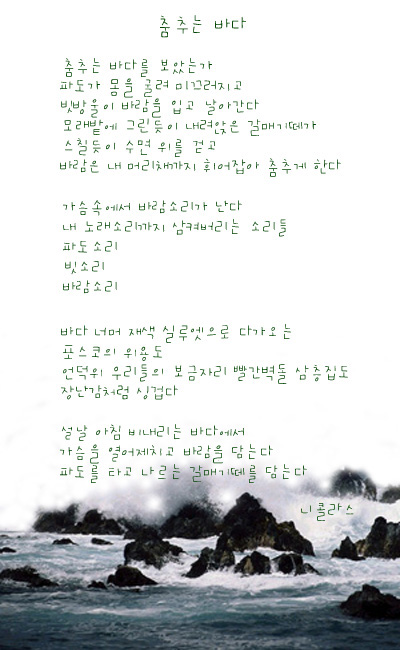 춤추는 바다
춤추는 바다를 보았는가
파도가 몸을 굴려 미끄러지고
빗방울이 바람을 입고 날아간다
모래밭에 그린듯이 내려앉은 갈매기떼가
스칠듯이 수면 위를 걷고
바람은 내 머리채까지 휘어잡아 춤추게 한다
가슴속에서 바람소리가 난다
내 노래소리까지 삼켜버리는 소리들
파도소리
빗소리
바람소리
바다 너머 재색 실루엣으로 다가오는
포스코의 위용도
언덕위 우리들의 보금자리 빨간벽돌 삼층집도
장난감처럼 싱겁다
설날 아침 비내리는 바다에서
가슴을 열어제치고 바람을 담는다
파도를 타고 나르는 갈매기떼를 담는다
니콜라스